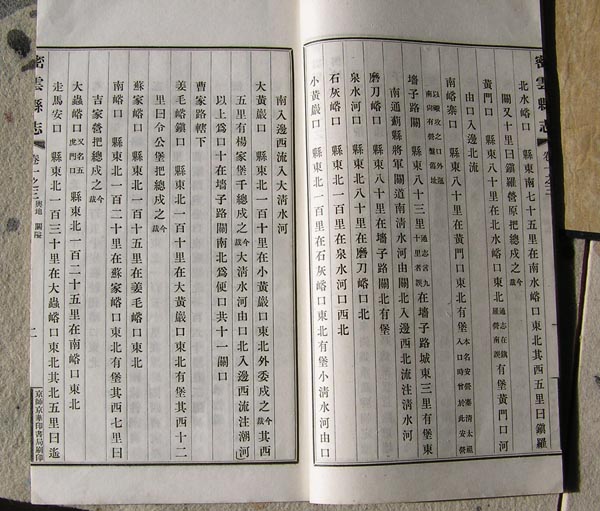 密雲縣志 卷一之三
北水峪口 縣東南七十五里在南水峪口東北其西五里曰鎭羅
關又十里曰鎭羅營原把總戍之今裁
黃門口 縣東八十里在北水峪口東北通志在鎭羅營南誤有堡黃門口河
由口入邊北流
南峪寨口 縣東八十里在黃門口東北有堡本名安營寨淸太祖入口時曾於此安營
墻子路關 縣東八十三里通志言九十里者誤在墻子路城東三里有堡東
南通薊縣將軍關道南清水河由關北入邊西北流注清水河
磨刀峪口 縣東八十里在墻子路關北有堡
泉水河口 縣東北八十里在磨刀峪口北
石灰峪口 縣東北一百里在泉水河口西北
小黃巖口 縣東北一百里在石灰峪口東北有堡小清水河由口
南入邊西流入大清水河
大黃巖口 縣東北一百十里在小黃巖口東北外委戍之今裁其西
五里有楊家堡千總戍之今裁大清水河由口北入邊西流注潮河
以上爲口十在墻子路關南北爲便口共十一關口
曹家路轄下
姜毛峪鎭口 縣東北一百十里在大黃巖口東北有堡其西十二
里曰令公堡把總戍之今裁
蘇家峪口 縣東北一百十五里在姜毛峪口東北
南峪口 縣東北一百二十里在蘇家峪口東北有堡其西七里曰
吉家營把總戍之今裁
大蟲峪口又名五虎門口 縣東北一百二十五里在南峪口東北
走馬安口 縣東北一百三十里在大蟲峪口東北其北五里曰迤
密雲縣志 卷一之三 輿地 關隘 二
京師京華印書局刷印